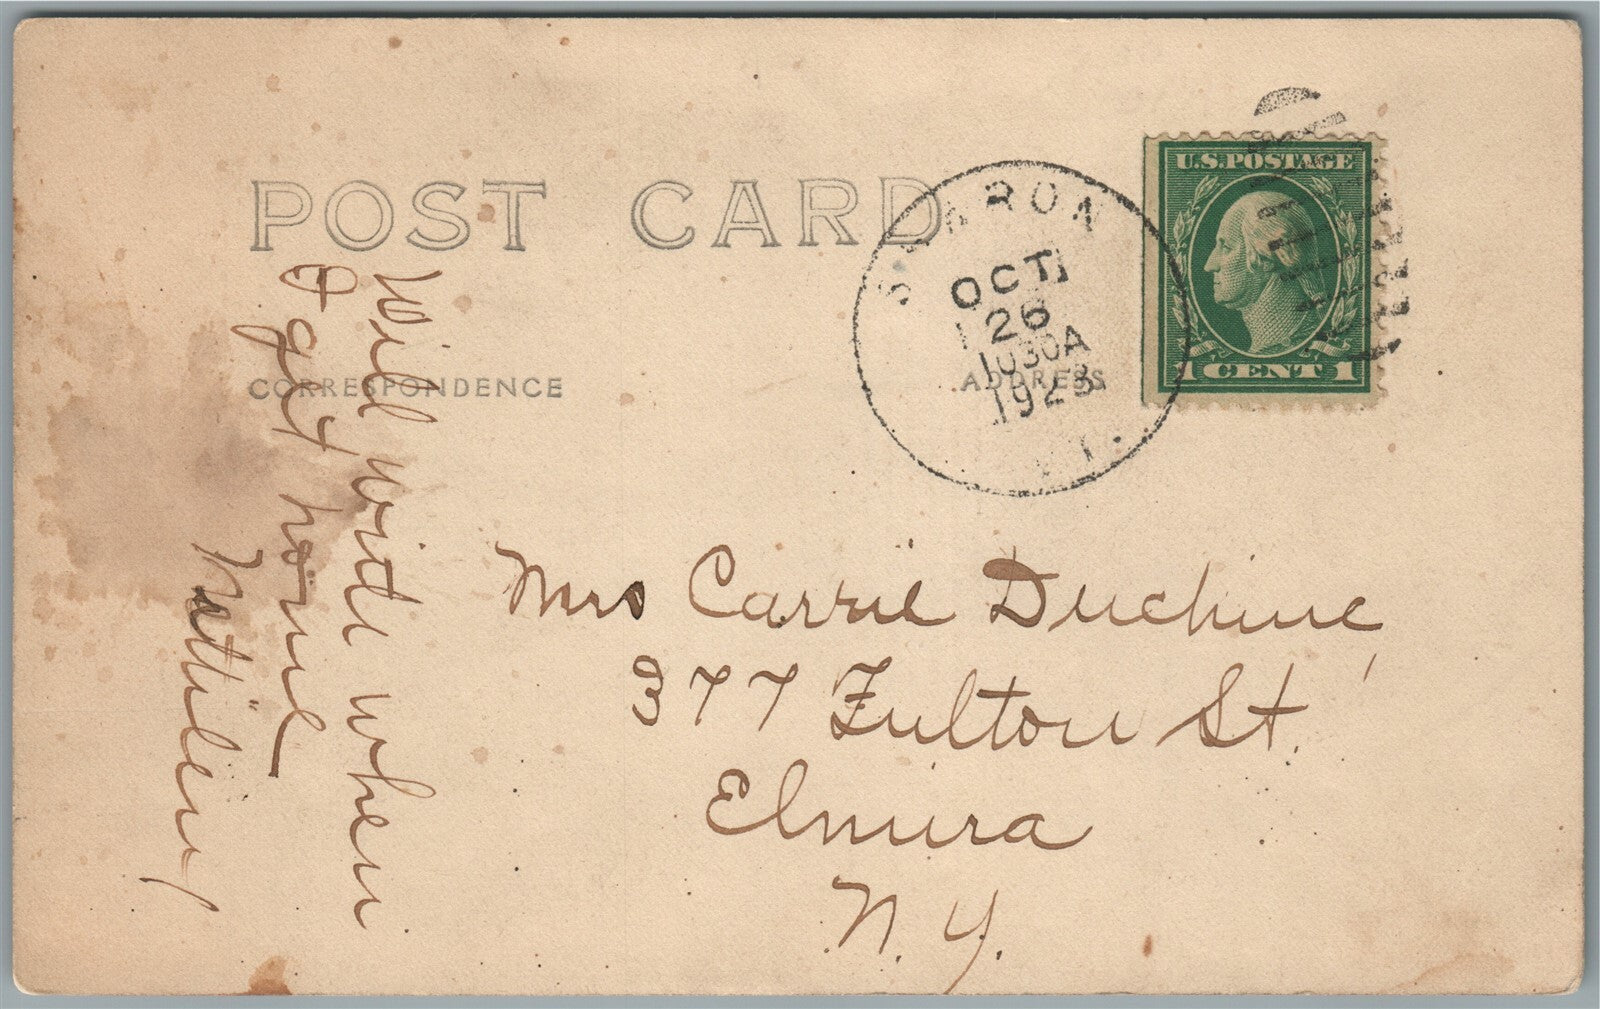 POST CARD
CORRESPONDENCE
ADDRESS
SHARON
OCT
26
1030A
1923
VT.
U.S.POSTAGE
1 CENT 1
Will write when
I get home
Mrs Carrie Duchine
377 Fulton St.
Elmira
N. Y.